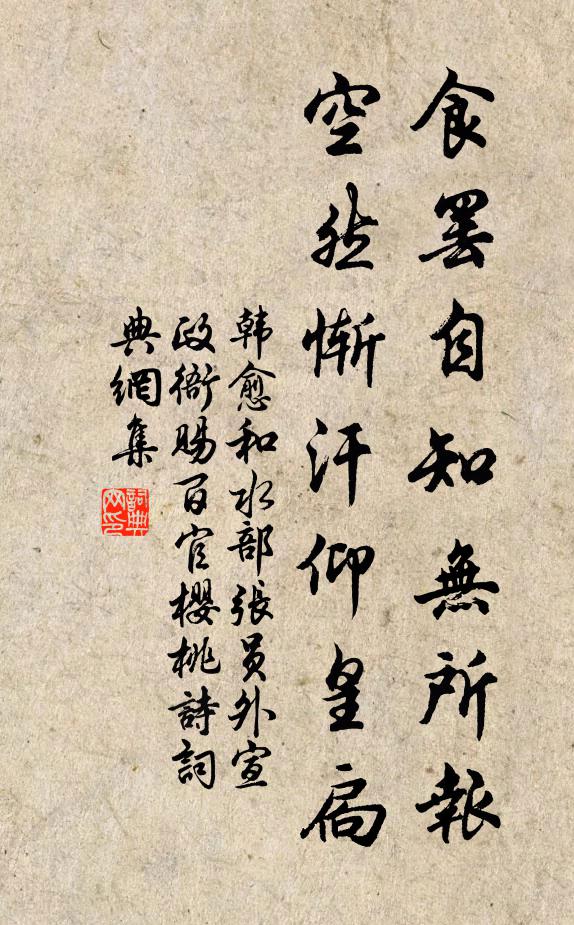 食罢自知無所報
空然慚汗仰皇扃
韩愈和水部張員外宣
政衙賜百官櫻桃詩詞
典網集
詞典網印